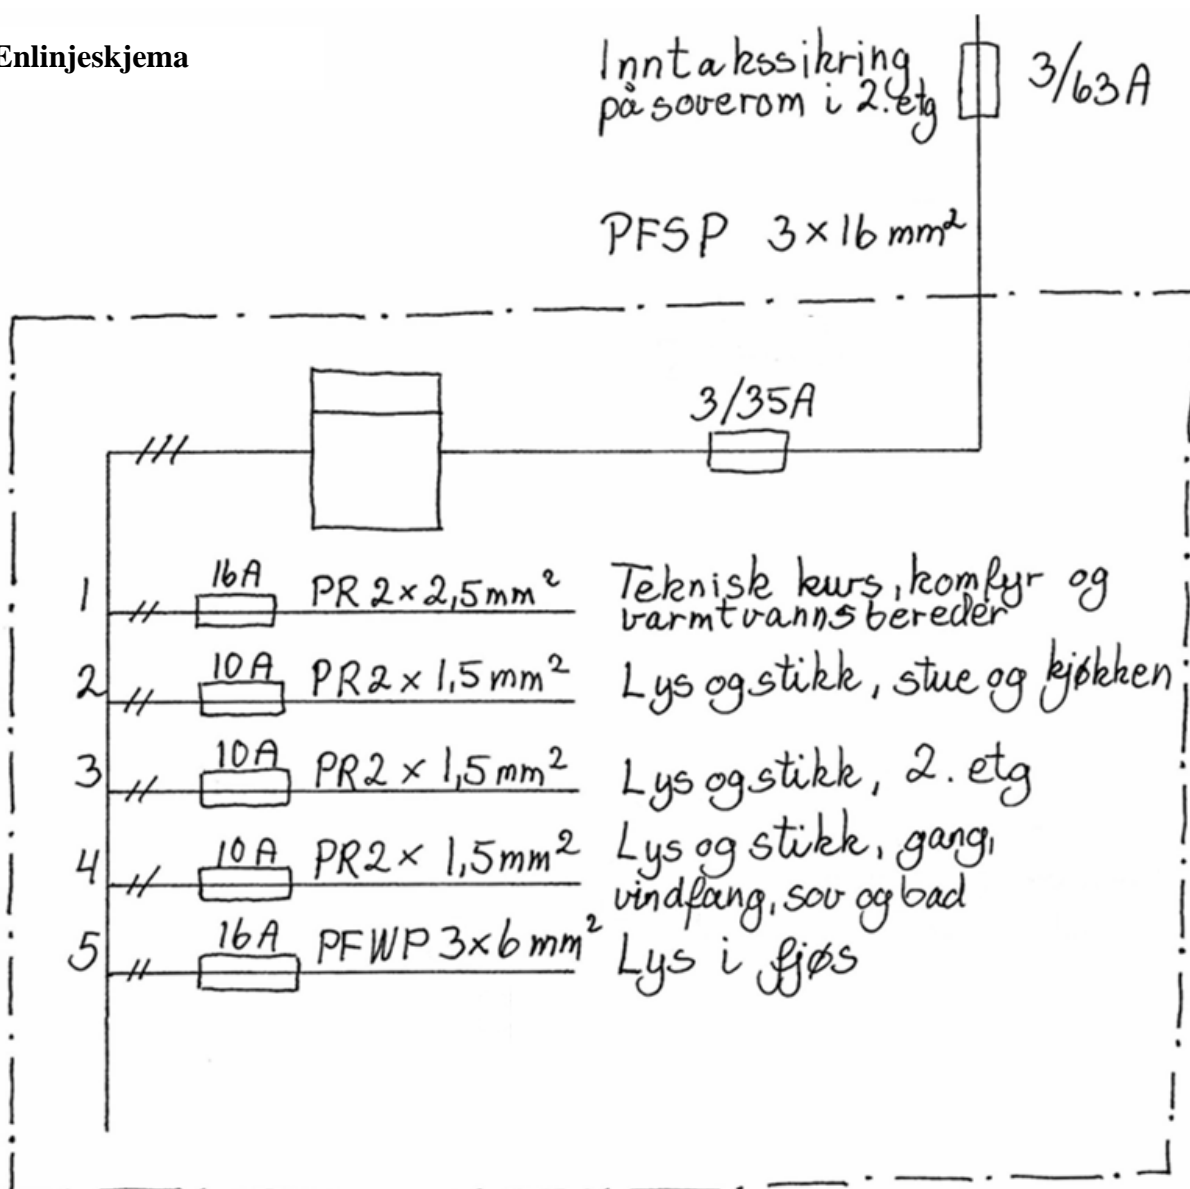 Enlinjeskjema
Inntakssikring
på soverom i 2. etg
3/63A
PFSP 3×16 mm²
3/35A
1 16A PR 2×2,5mm² Teknisk kurs, komfyr og
varmtvannsbereder
2 10A PR2×1,5mm² Lys og stikk, stue og kjøkken
3 10A PR2×1,5mm² Lys og stikk, 2. etg
4 10A PR2×1,5mm² Lys og stikk, gang,
vindfang, sov og bad
5 16A PFWP 3×6mm² Lys i fjøs